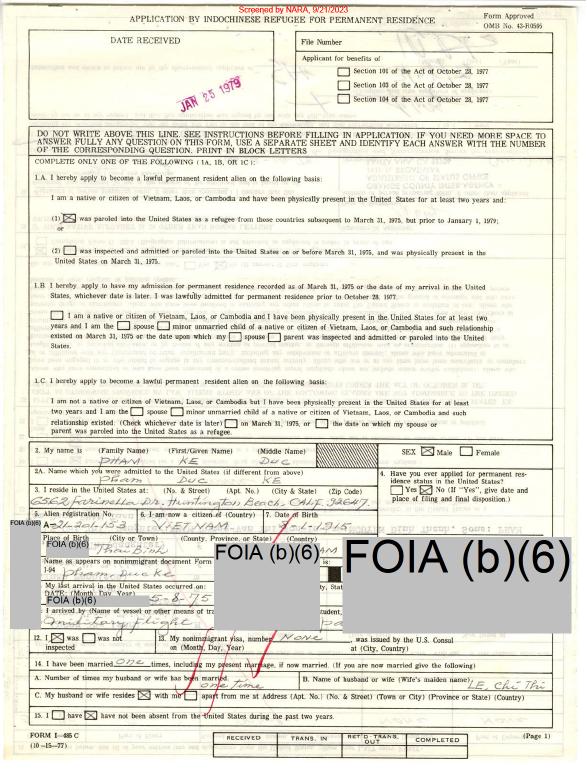 Screened by NARA, 9/21/2023
APPLICATION BY INDOCHINESE REFUGEE FOR PERMANENT RESIDENCE
Form Approved
OMB No. 43-R0566
DATE RECEIVED
JAN 25 1979
File Number
Applicant for benefits of
Section 101 of the Act of October 28, 1977
Section 103 of the Act of October 28, 1977
Section 104 of the Act of October 28, 1977
DO NOT WRITE ABOVE THIS LINE. SEE INSTRUCTIONS BEFORE FILLING IN APPLICATION. IF YOU NEED MORE SPACE TO
ANSWER FULLY ANY QUESTION ON THIS FORM, USE A SEPARATE SHEET AND IDENTIFY EACH ANSWER WITH THE NUMBER
OF THE CORRESPONDING QUESTION. PRINT IN BLOCK LETTERS
COMPLETE ONLY ONE OF THE FOLLOWING (1A, 1B, OR 1C):
1.A. I hereby apply to become a lawful permanent resident alien on the following basis:
I am a native or citizen of Vietnam, Laos, or Cambodia and have been physically present in the United States for at least two years and:
(1) ☒ was paroled into the United States as a refugee from those countries subsequent to March 31, 1975, but prior to January 1, 1979;
or
(2) was inspected and admitted or paroled into the United States on or before March 31, 1975, and was physically present in the
United States on March 31, 1975.
1.B. I hereby apply to have my admission for permanent residence recorded as of March 31, 1975 or the date of my arrival in the United
States, whichever date is later. I was lawfully admitted for permanent residence prior to October 28, 1977.
I am a native or citizen of Vietnam, Laos, or Cambodia and I have been physically present in the United States for at least two
years and I am the spouse minor unmarried child of a native or citizen of Vietnam, Laos, or Cambodia and such relationship
existed on March 31, 1975 or the date upon which my spouse parent was inspected and admitted or paroled into the United
States.
1.C. I hereby apply to become a lawful permanent resident alien on the following basis:
I am not a native or citizen of Vietnam, Laos, or Cambodia but I have been physically present in the United States for at least
two years and I am the spouse minor unmarried child of a native or citizen of Vietnam, Laos, or Cambodia and such
relationship existed. (Check whichever date is later) on March 31, 1975, or the date on which my spouse or
parent was paroled into the United States as a refugee.
2. My name is (Family Name) (First/Given Name) (Middle Name)
PHAM KE DUC
SEX ☒ Male Female
2A. Name which you were admitted to the United States (if different from above)
Pham Duc KE
3. I reside in the United States at: (No. & Street) (Apt. No.) (City & State) (Zip Code)
6562 Farinella Dr. Huntington Beach, CALIF. 92647
4. Have you ever applied for permanent residence status in the United States?
Yes ☒ No (If "Yes", give date and
place of filing and final disposition.)
5. Alien registration No. 6. I am now a citizen of (Country) 7. Date of Birth
FOIA (b)(6) A=21-201-153 VIET NAM -1-1915
Place of Birth (City or Town) (County, Province, or State) (Country)
FOIA (b)(6) Thai Binh FOIA (b)(6) AM FOIA (b)(6)
Name as appears on nonimmigrant document Form is:
I-94 Pham, Duc Ke
My last arrival in the United States occurred on: ty, State)
DATE: (Month, Day, Year)
FOIA (b)(6) 5-8-75
I arrived by (Name of vessel or other means of tra tudent,
military flight
12. I ☒ was was not
inspected
13. My nonimmigrant visa, number NONE, was issued by the U.S. Consul
on (Month, Day, Year) at (City, Country)
14. I have been married one times, including my present marriage, if now married. (If you are now married give the following)
A. Number of times my husband or wife has been married. one time
B. Name of husband or wife (Wife's maiden name) LE, Chi Thi
C. My husband or wife resides ☒ with me apart from me at Address (Apt. No.) (No. & Street) (Town or City) (Province or State) (Country)
15. I have ☒ have not been absent from the United States during the past two years.
FORM I-485 C
(10-15-77)
RECEIVED TRANS. IN RET'D-TRANS. OUT COMPLETED
(Page 1)